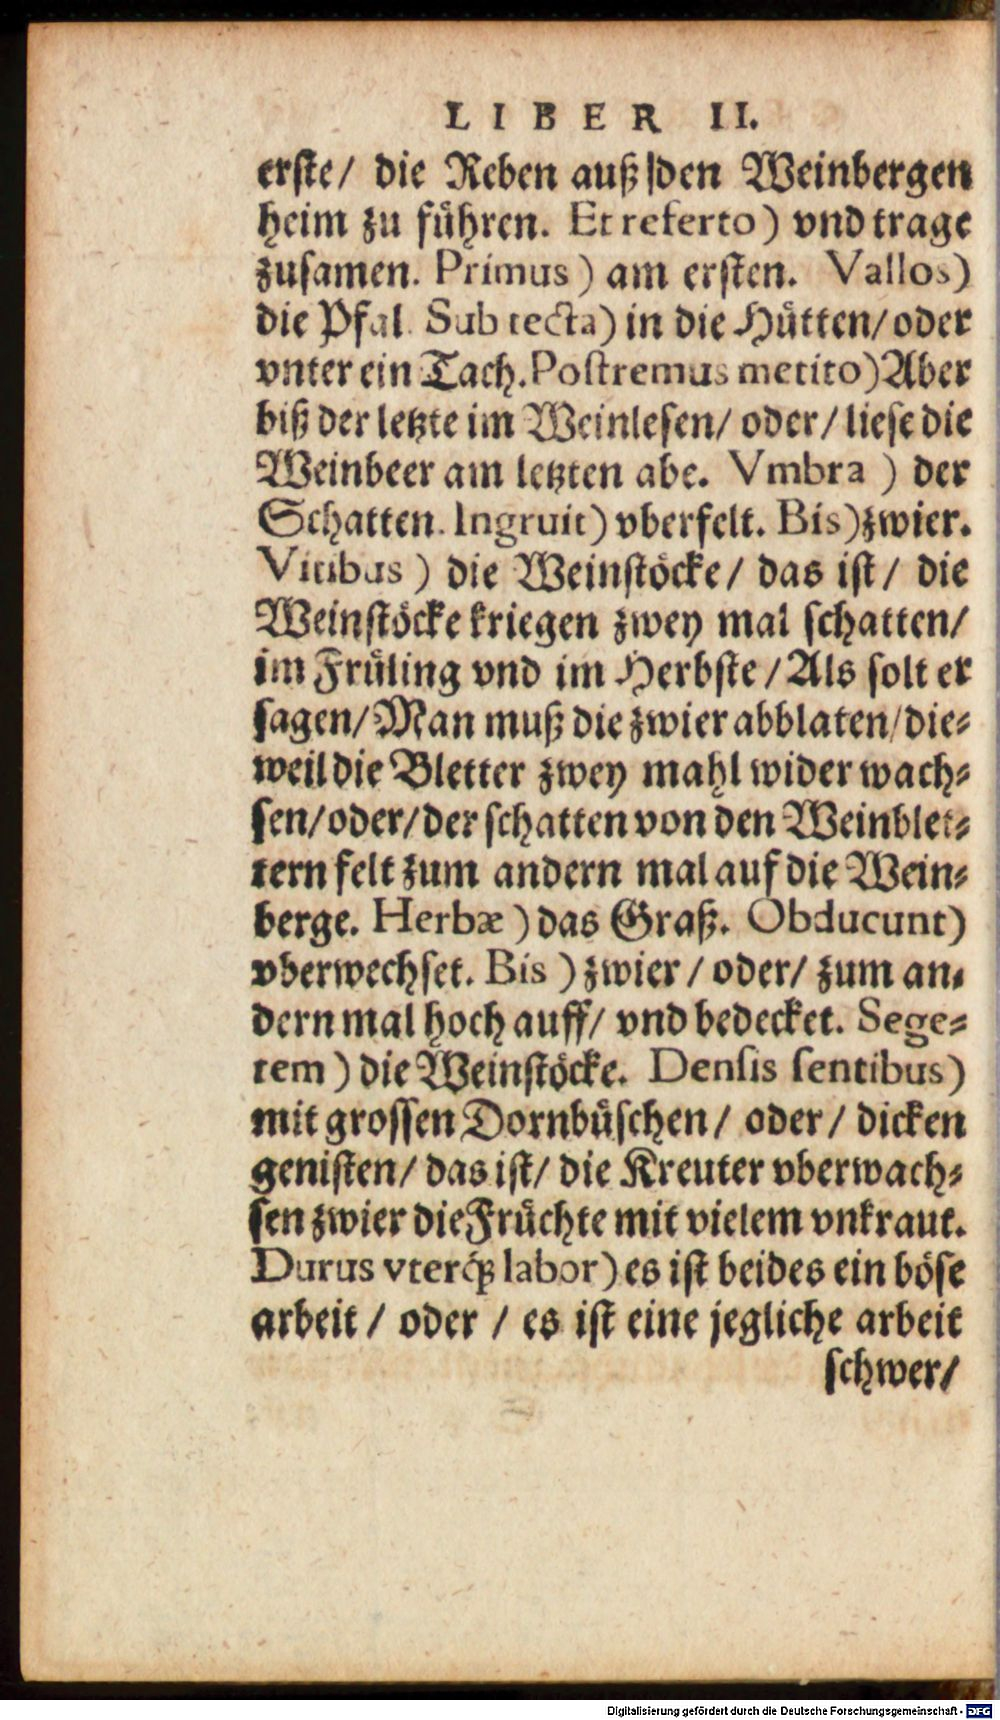 LIBER II.
erste/ die Reben auß den Weinbergen
heim zu führen. Et referto) vnd trage
zusamen. Primus) am ersten. Vallos)
die Pfal. Sub tecta) in die Hütten/ oder
vnter ein Tach. Postremus metito) Aber
biß der letzte im Weinlesen/ oder/ liese die
Weinbeer am letzten abe. Vmbra) der
Schatten. Ingruit) vberfelt. Bis) zwier.
Vitibus) die Weinstöcke/ das ist/ die
Weinstöcke kriegen zwey mal schatten/
im Früling vnd im Herbste/ Als solt er
sagen/ Man muß die zwier abblaten/ die-
weil die Bletter zwey mahl wider wach-
sen/ oder/ der schatten von den Weinblet-
tern felt zum andern mal auf die Wein-
berge. Herbæ) das Graß. Obducunt)
vberwechset. Bis) zwier/ oder/ zum an-
dern mal hoch auff/ vnd bedecket. Sege-
tem) die Weinstöcke. Densis sentibus)
mit grossen Dornbüschen/ oder/ dicken
genisten/ das ist/ die Kreuter vberwach-
sen zwier die Früchte mit vielem vnkraut.
Durus vterq́ꝫ labor) es ist beides ein böse
arbeit/ oder/ es ist eine jegliche arbeit
schwer/
Digitalisierung gefördert durch die Deutsche Forschungsgemeinschaft - DFG